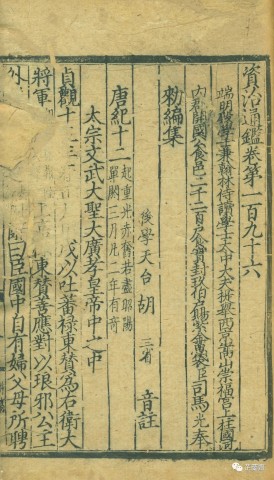 資治通鑑卷第一百九十六
端明殿學士兼翰林侍讀學士太中大夫提舉西京嵩山崇福宮上柱國河
內郡開國公食邑二千二百戶食實封玖伯戶賜紫金魚袋臣司馬光奉
勑編集
後學天台胡三省音註
唐紀十二 起重光赤奮若盡昭陽單閼三月凡二年有奇
太宗文武大聖大廣孝皇帝中之中
貞觀十 戊以吐蕃祿東贊爲右衛大
將軍 東贊善應對以琅邪公主
外 曰臣國中自有婦父母所聘